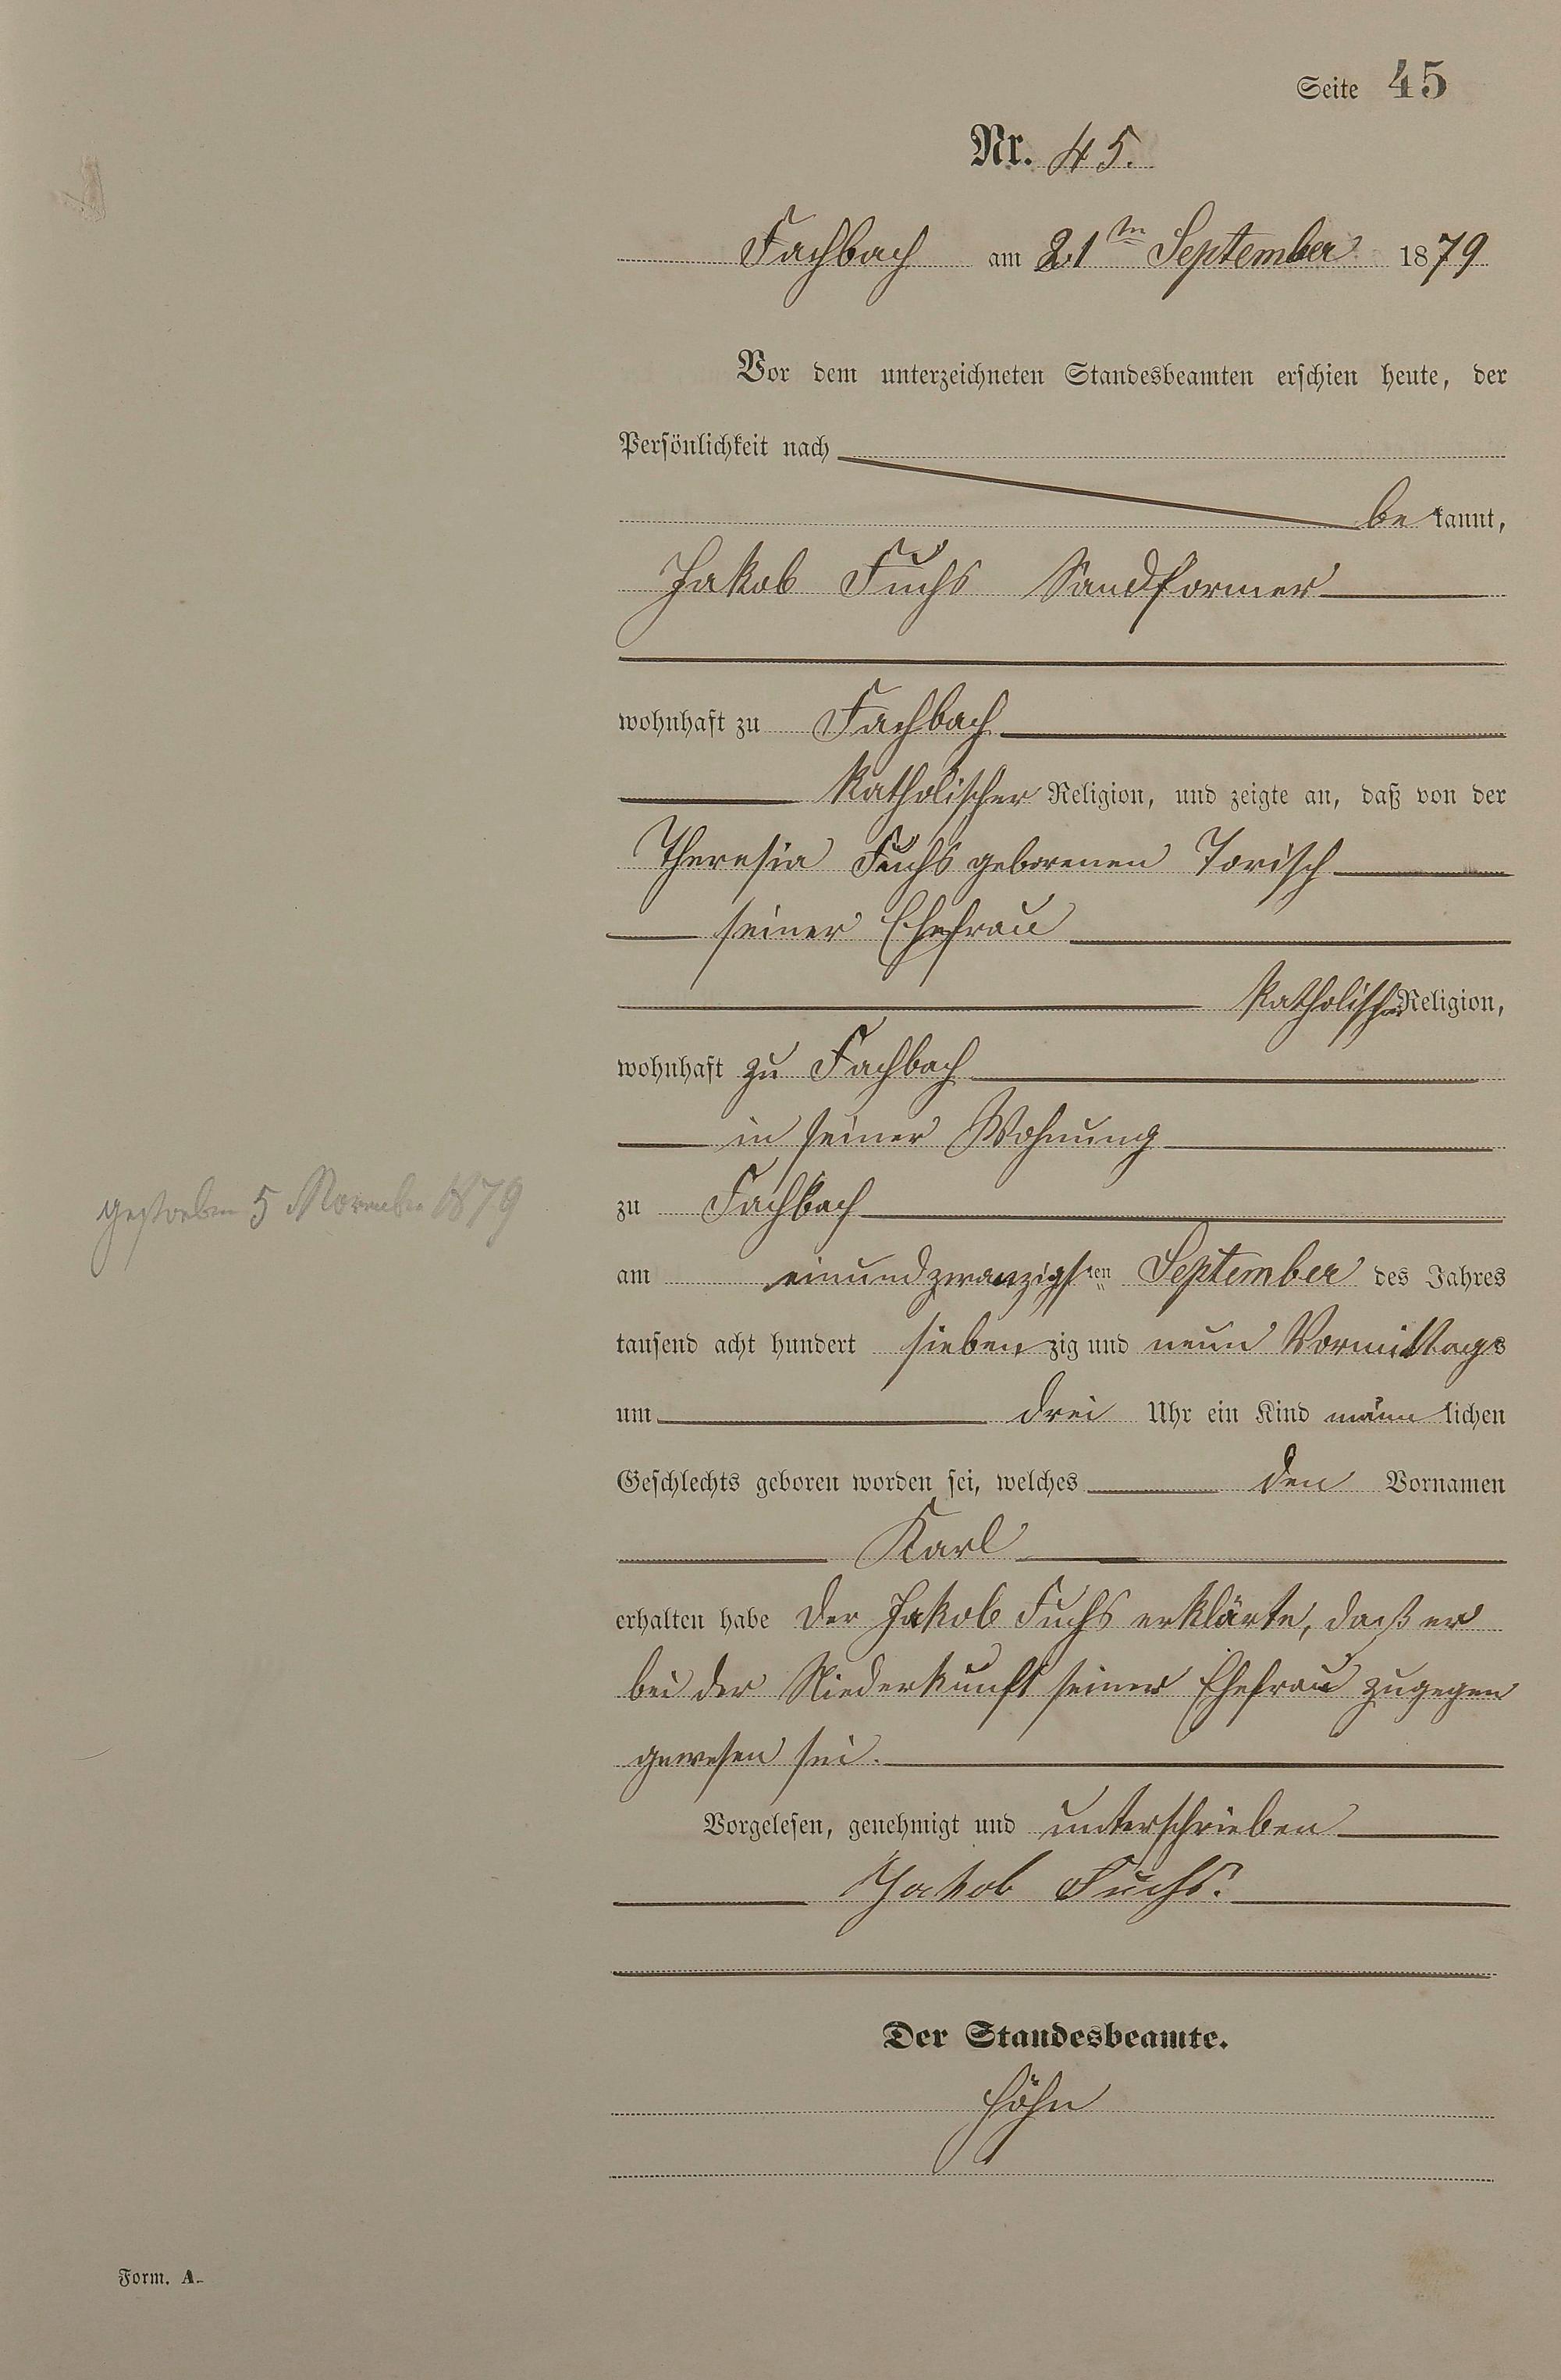 Seite 45
Nr. 45.
Fachbach am 21ten September 1879
Vor dem unterzeichneten Standesbeamten erschien heute, der
Persönlichkeit nach
bekannt,
Jakob Fuchs Sandformer
wohnhaft zu Fachbach
katholischer Religion, und zeigte an, daß von der
Theresia Fuchs geborenen Torisch
seiner Ehefrau
katholischer Religion,
wohnhaft zu Fachbach
in seiner Wohnung
gestorben 5 November 1879
zu Fachbach
am einundzwanzigsten September des Jahres
tausend acht hundert siebenzig und neun Vormittags
um drei Uhr ein Kind männlichen
Geschlechts geboren worden sei, welches den Vornamen
Karl
erhalten habe Der Jakob Fuchs erklärte, daß er
bei der Niederkunft seiner Ehefrau zugegen
gewesen sei.
Vorgelesen, genehmigt und unterschrieben
Jakob Fuchs.
Der Standesbeamte.
Höhn
Form. A.